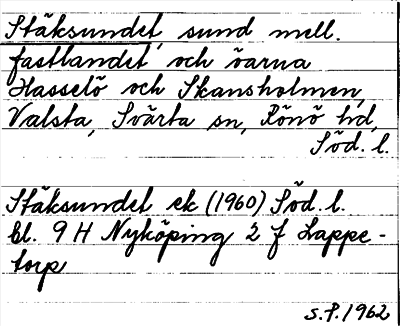 Stäksundet, sund mell.
fastlandet och öarna
Hasselö och Skansholmen,
Valsta, Svärta sn, Rönö hd,
Söd. l.
Stäksundet ek (1960) Söd. l.
bl. 9 H Nyköping 2 f Lappe-
torp
S.P. 1962